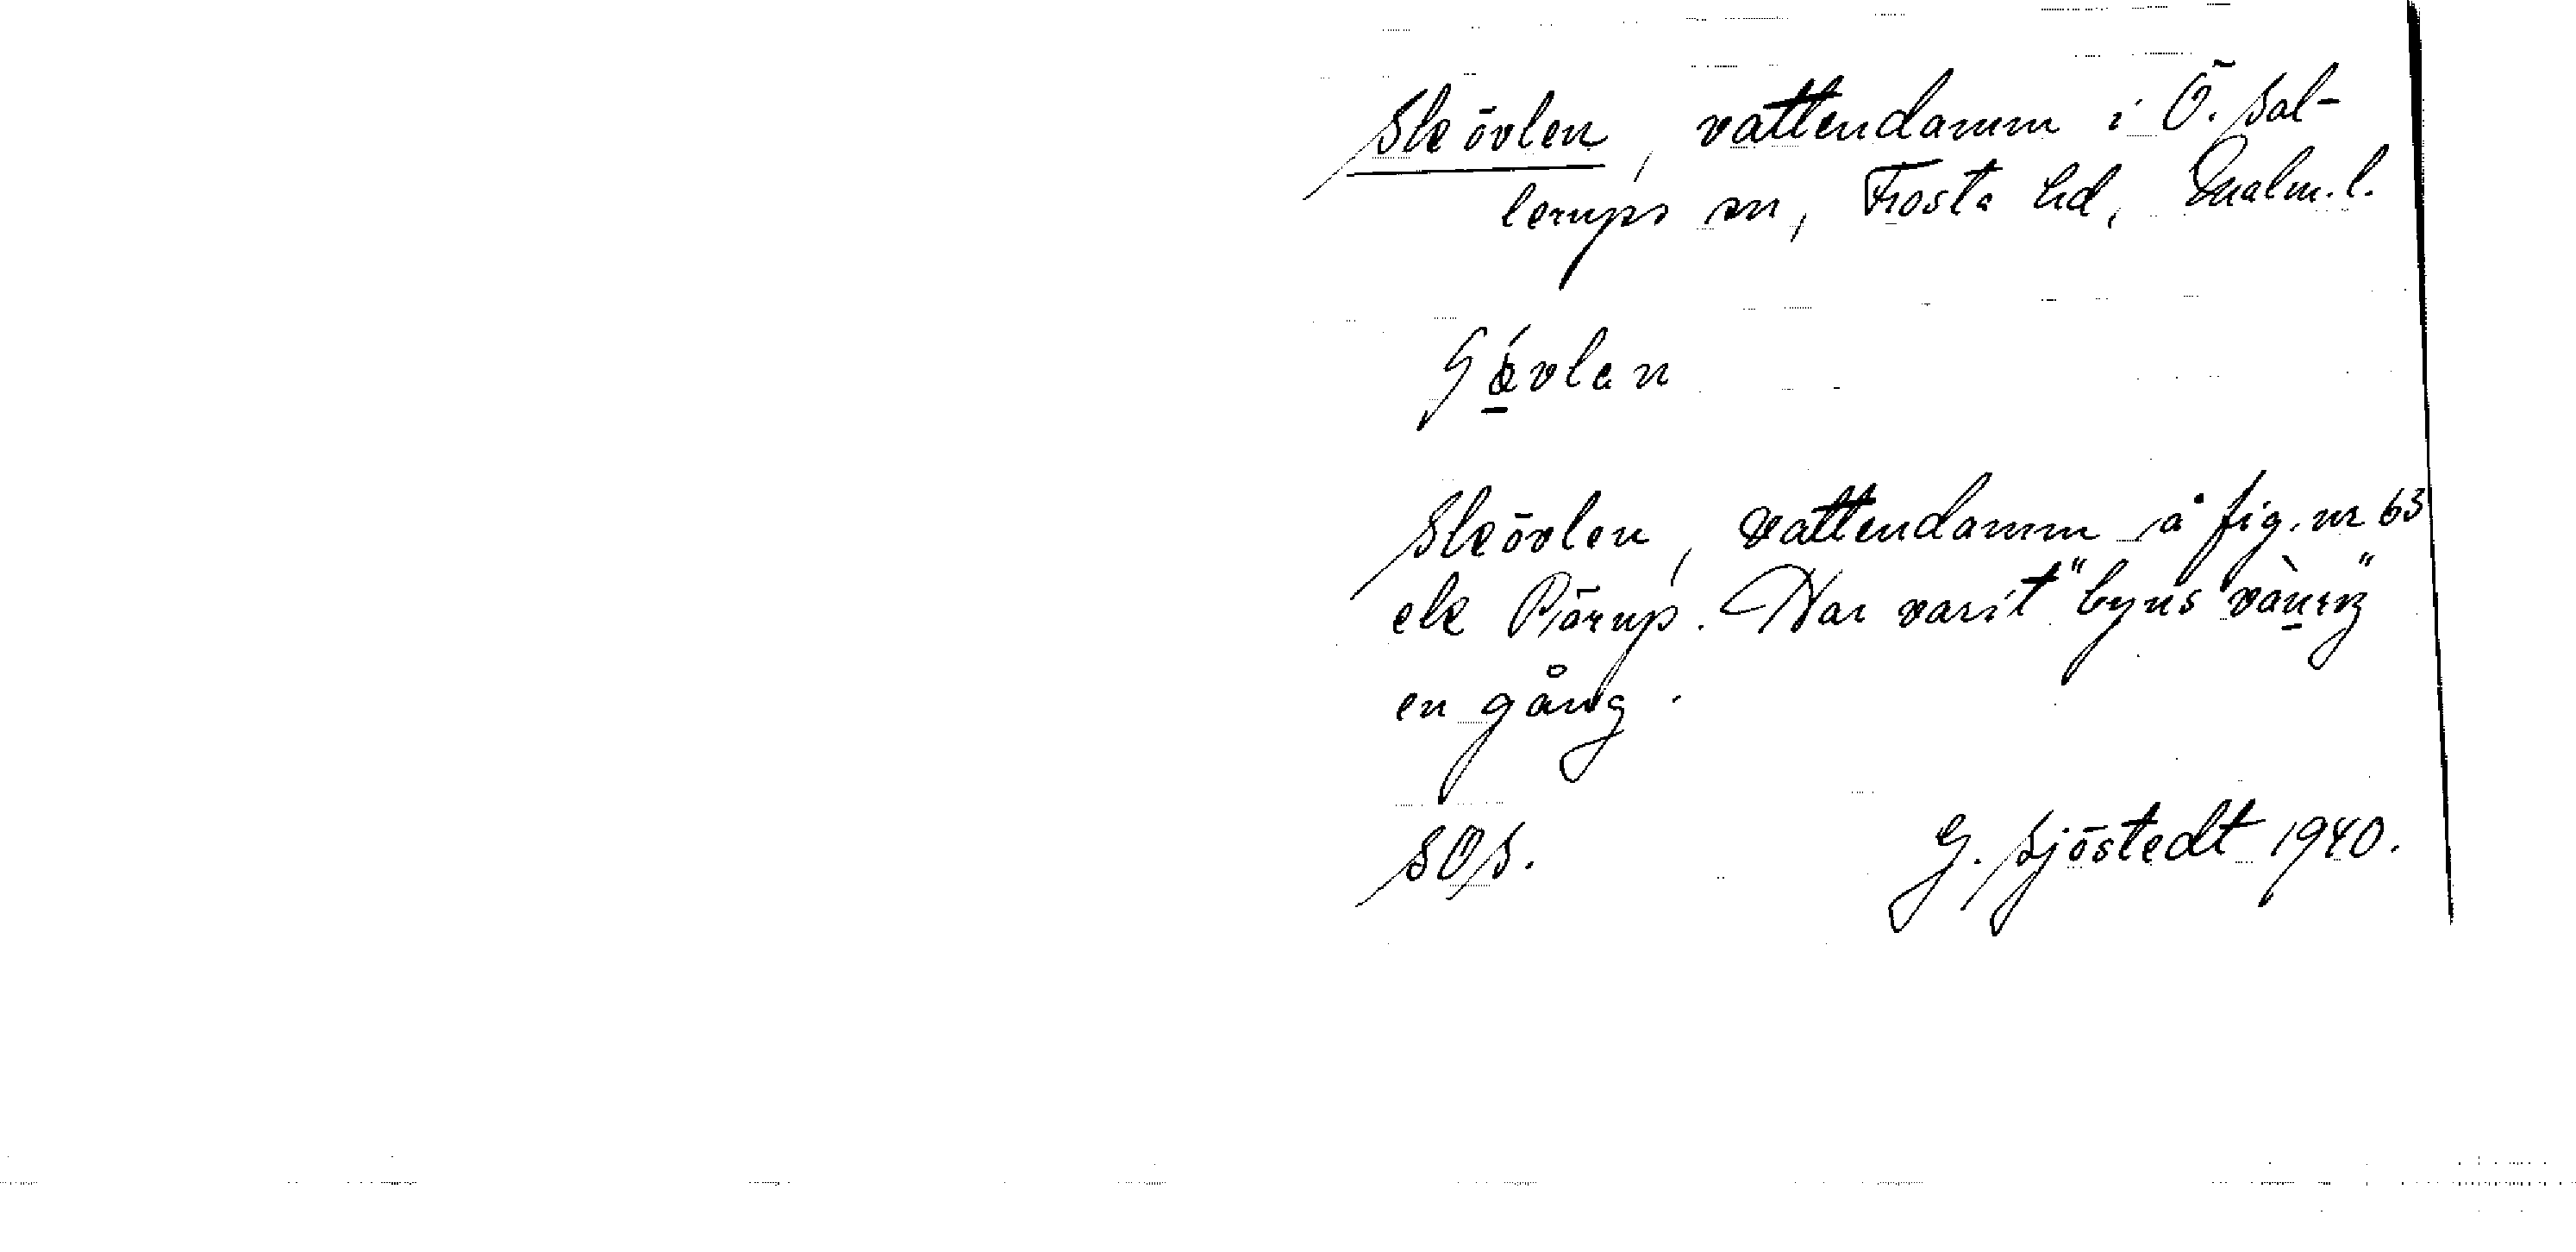 Skövlen, vattendamm i Ö. Sal-
lerups sn, Frosta hd, Malm. l.
Skövlen, vattendamm å fig. nr 63
ek Pärup. Har varit "byns
en gång.
SOS. G. Sjöstedt 1940.